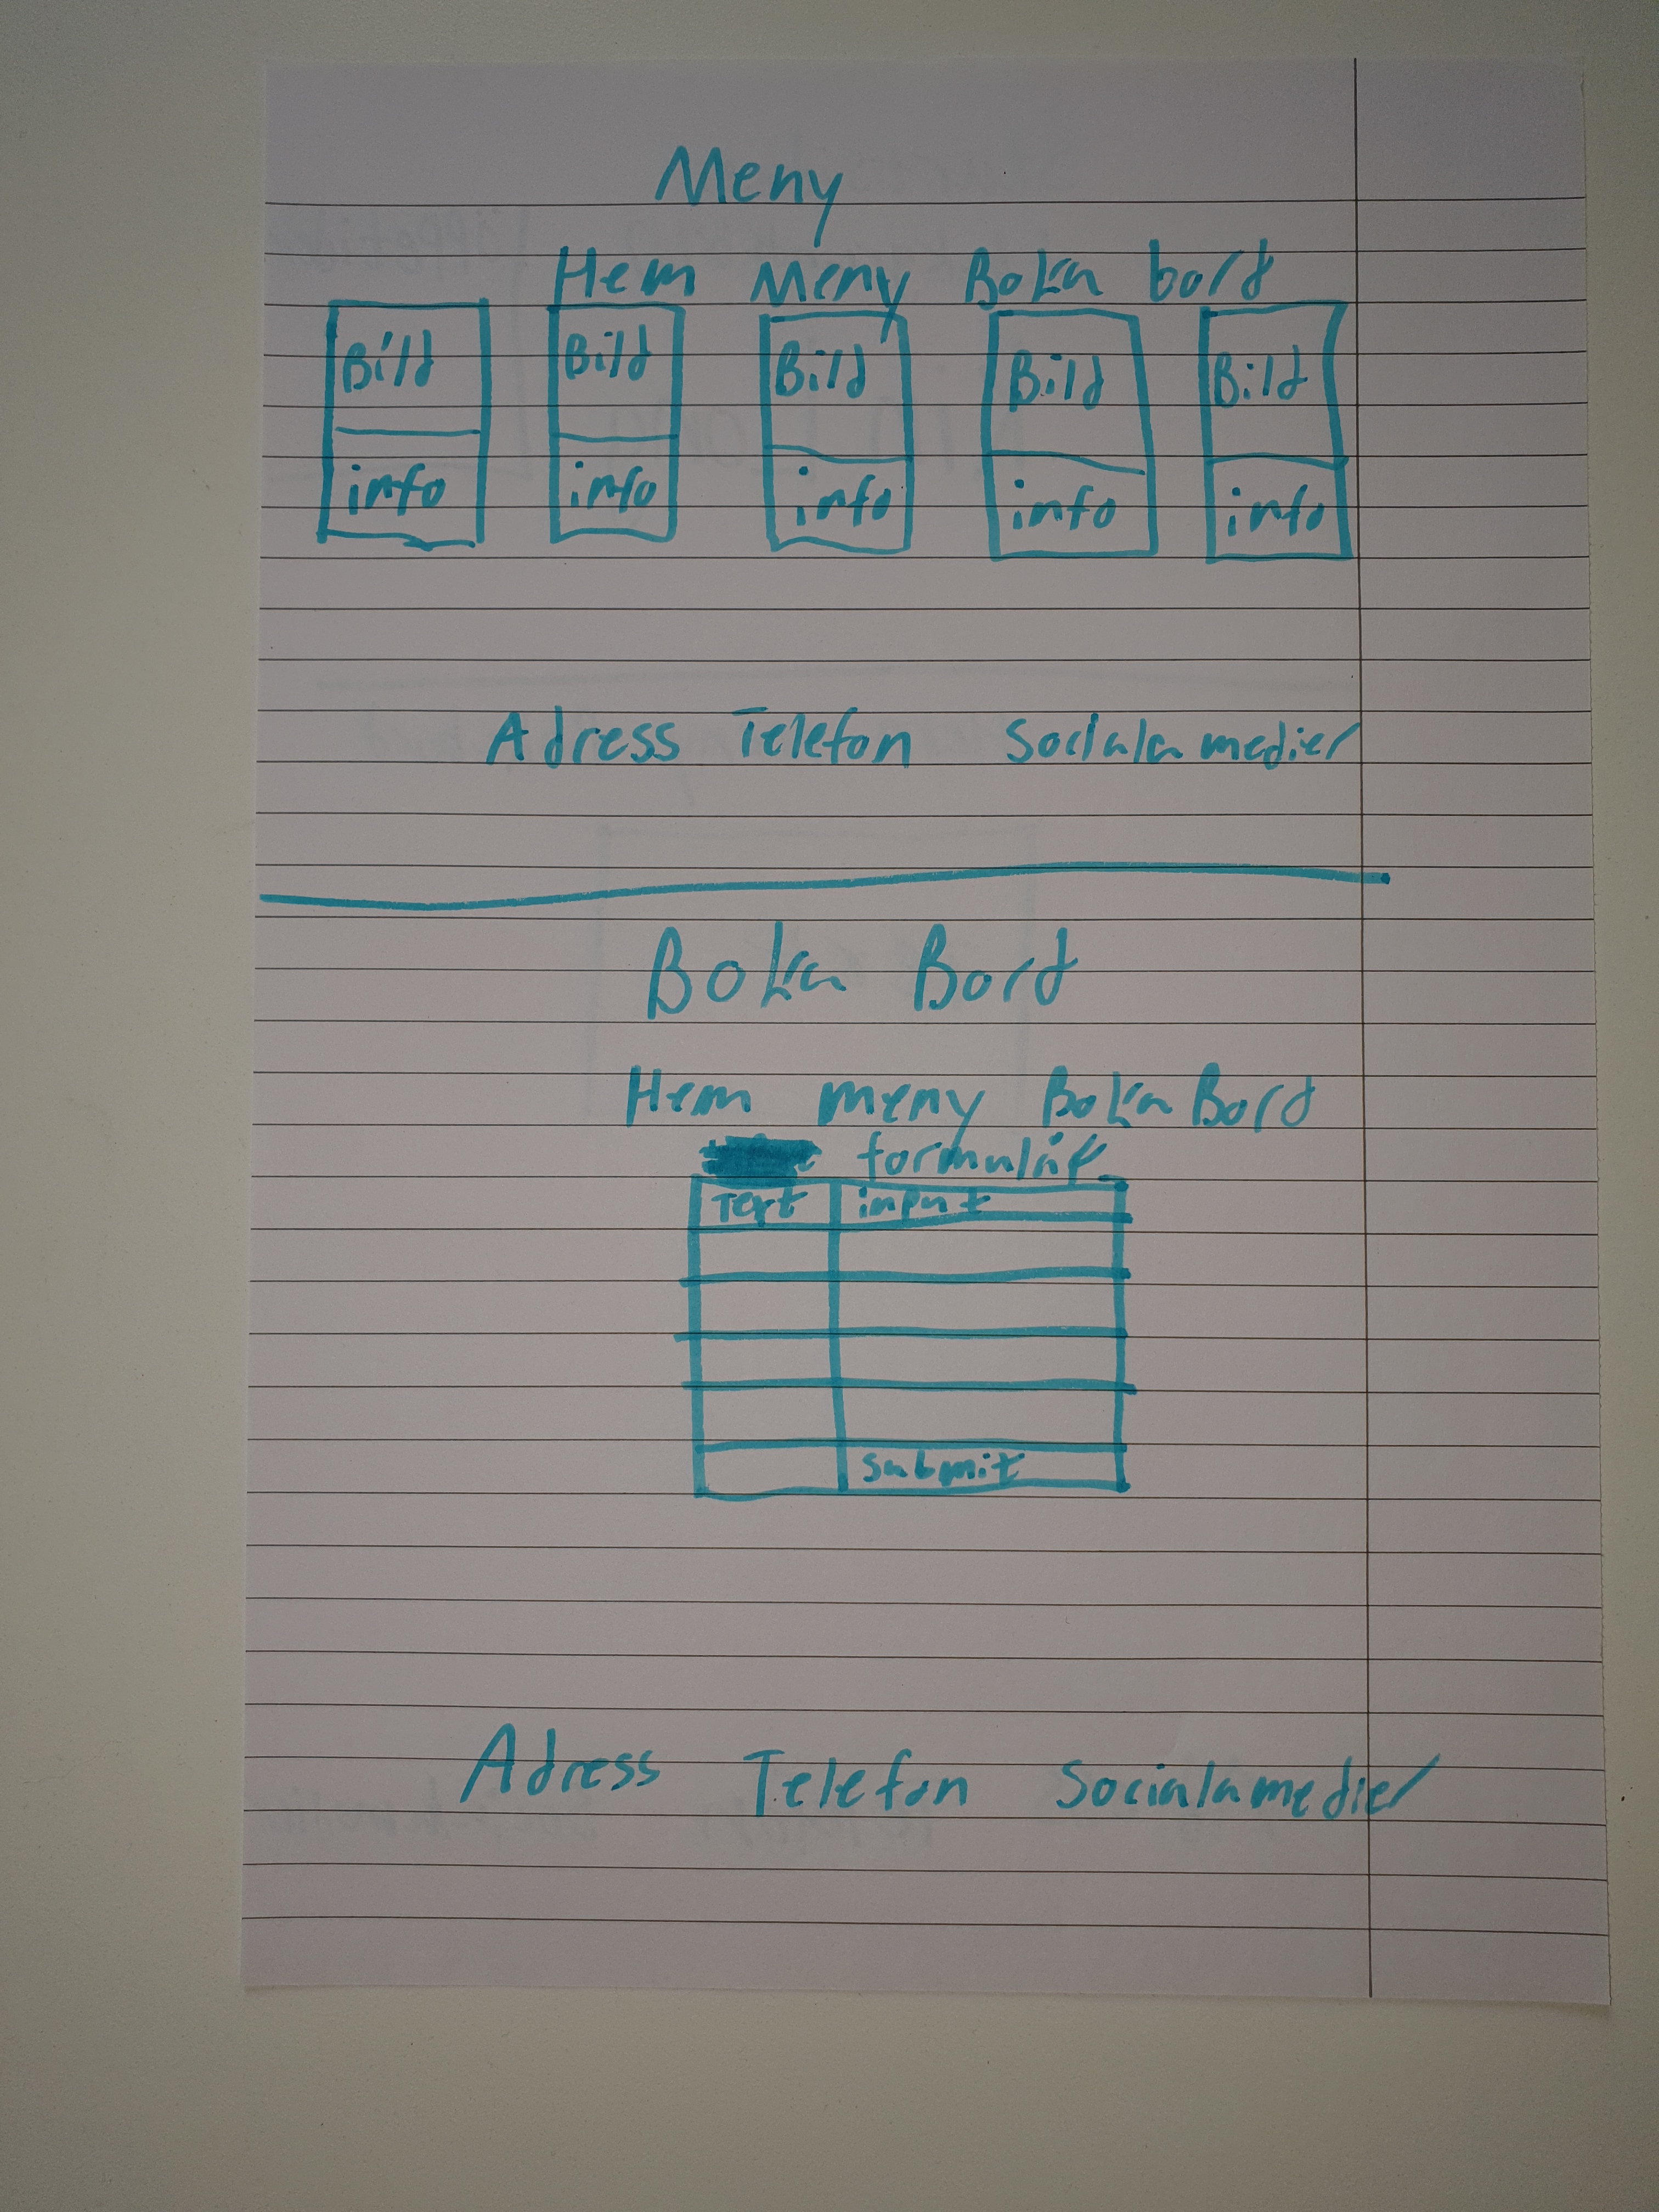 Meny
Hem Meny Boka bord
Bild Bild Bild Bild Bild
info info info info info
Adress Telefon Sociala medier
Boka Bord
Hem meny Boka Bord
formulär
Text input
submit
Adress Telefon Sociala medier